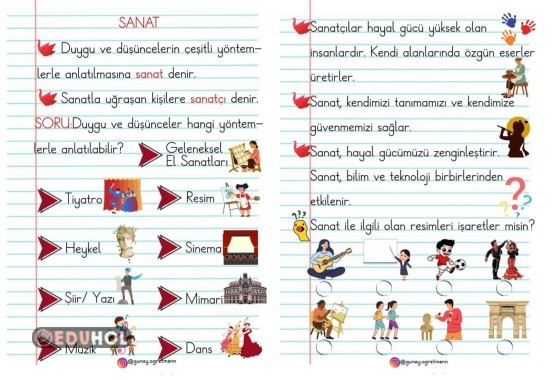 SANAT
Duygu ve düşüncelerin çeşitli yöntem-
lerle anlatılmasına sanat denir.
Sanatla uğraşan kişilere sanatçı denir.
SORU:Duygu ve düşünceler hangi yöntem-
lerle anlatılabilir?
Geleneksel
El Sanatları
Tiyatro
Resim
Heykel
Sinema
Şiir/ Yazı
Mimari
Müzik
Dans
EDUHOL
@gunay.ogretmenn
Sanatçılar hayal gücü yüksek olan
insanlardır. Kendi alanlarında özgün eserler
üretirler.
Sanat, kendimizi tanımamızı ve kendimize
güvenmemizi sağlar.
Sanat, hayal gücümüzü zenginleştirir.
Sanat, bilim ve teknoloji birbirlerinden
etkilenir.
Sanat ile ilgili olan resimleri işaretler misin?
@gunay.ogretmenn